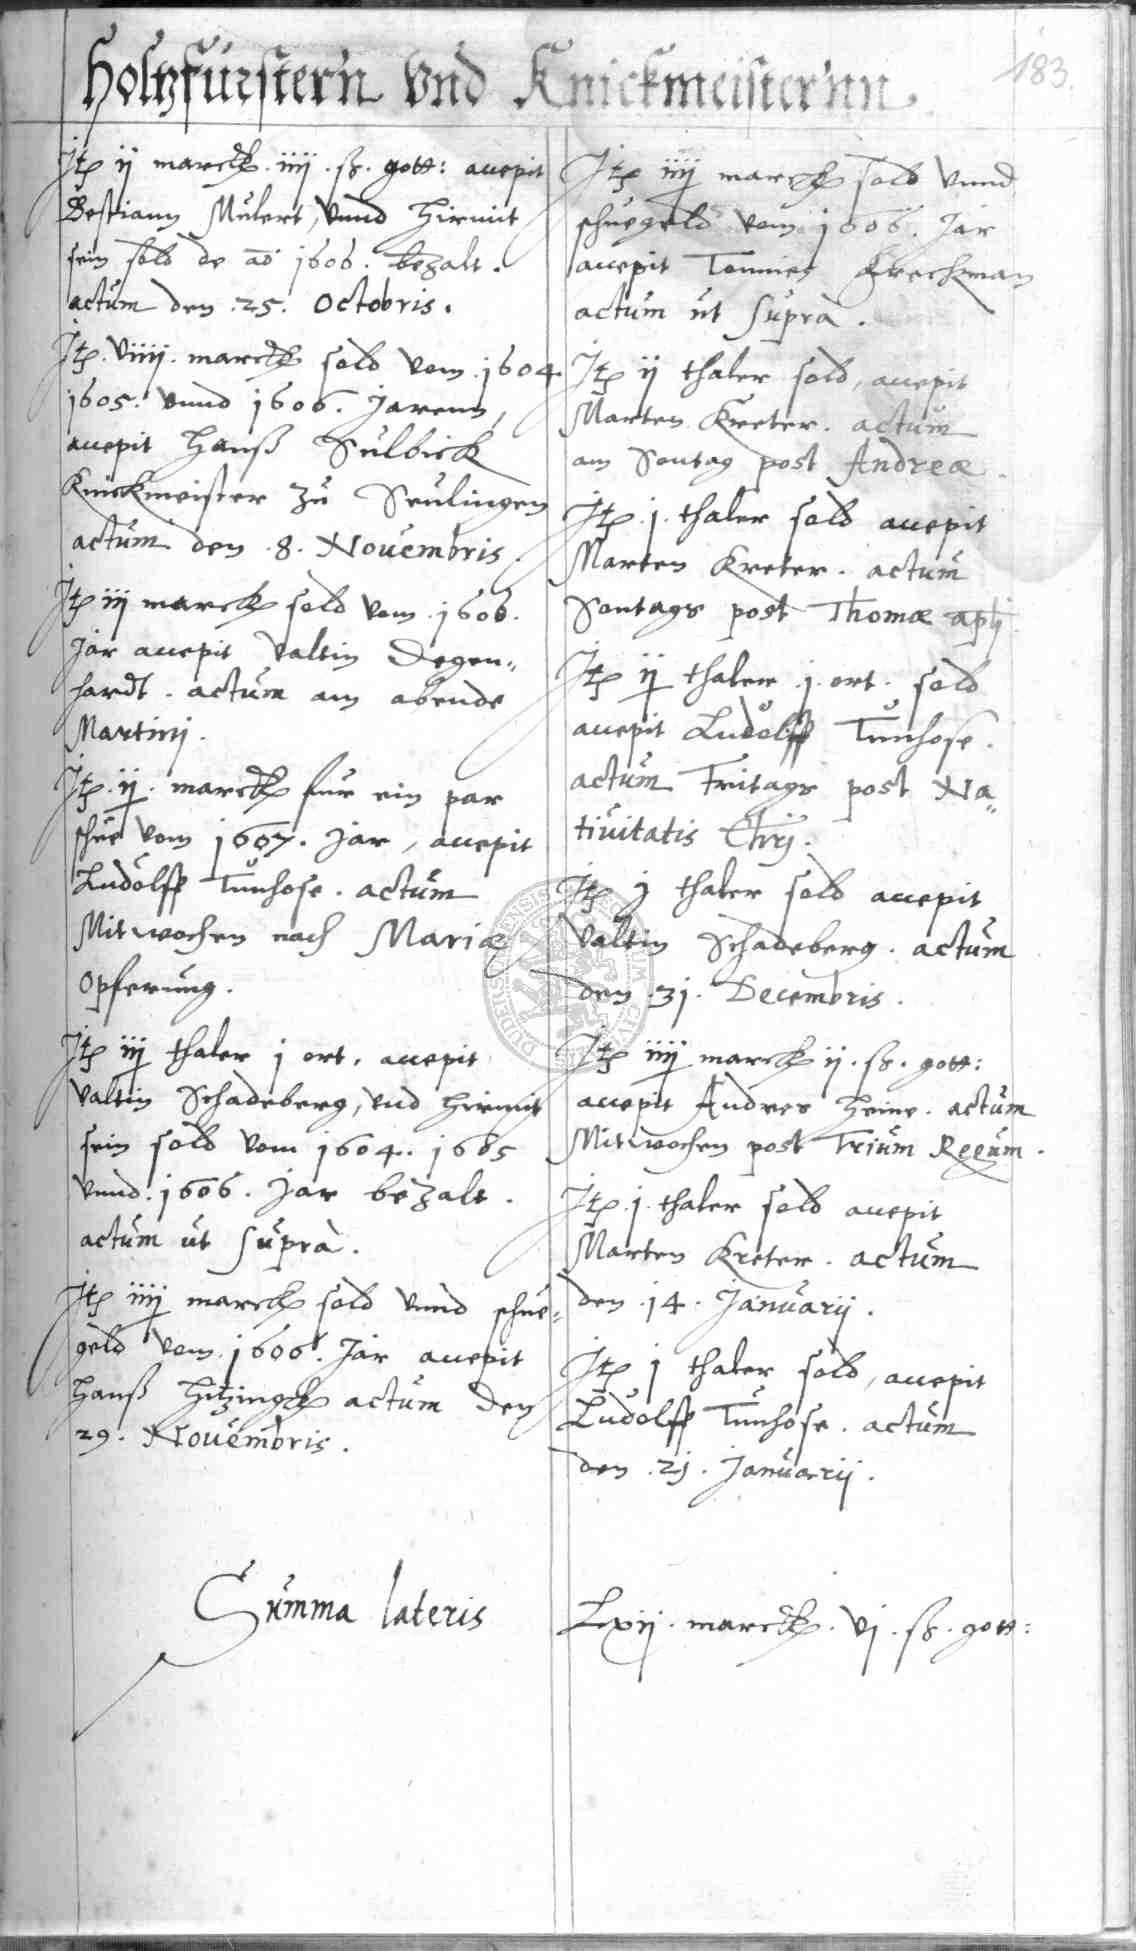 183.
Holtzfurstern vnd Knickmeisternn.
Jtem ij marck. iiij. ß. gott: accepit
Bestiann Mulert, vnnd hirmit
sein sold de ao 1606. bezalt.
actum den .25. Octobris.
Jtem. viiij. marck sold vom .1604.
1605. vnnd 1606. Jarenn,
accepit Hanß Sulbick
Knickmeister zu Seulingen
actum den .8. Novembris.
Jtem iij marck sold vom .1606.
Jar accepit Valtin Degen„
hardt. actum am abende
Martini.
Jtem .ij. marck fur ein par
schue vom 1607. Jar, accepit
Ludolff Tunhose. actum
Mitwochen nach Mariæ
Opferung.
Jtem iij thaler j ort. accepit
Valtin Schadeberg, vnd hirmit
sein sold vom 1604. 1605
vnnd. 1606. Jar bezalt.
actum ut supra.
Jtem iiij marck sold vnnd schue„
geld vom .1606. Jar accepit
Hanß Hitzingk actum den
29. Novembris.
Jtem iiij marck sold vnnd
schuegeld vom 1606. Jar
accepit Tonnies Freckman
actum ut supra.
Jtem ij thaler sold, accepit
Marten Kreter. actum
am Sontag post Andreæ.
Jtem .j. thaler sold accepit
Marten Kreter. actum
Sontags post Thomæ apli
Jtem ij thaler .j. ort. sold
accepit Ludolff Tunhose.
actum Fritags post Na„
tiuitatis Chrij.
Jtem j thaler sold accepit
Valtin Schadeberg. actum
den .31. Decembris.
Jtem iiij marck ij. ß. gott:
accepit Andres Heine. actum
Mitwochen post Trium Regum.
Jtem .j. thaler sold accepit
Marten Kreter. actum
den .14. Januarij.
Jtem j thaler sold, accepit
Ludolff Tunhose. actum
den .21. Januarij.
Summa lateris Lxij. marck. vj. ß. gott: